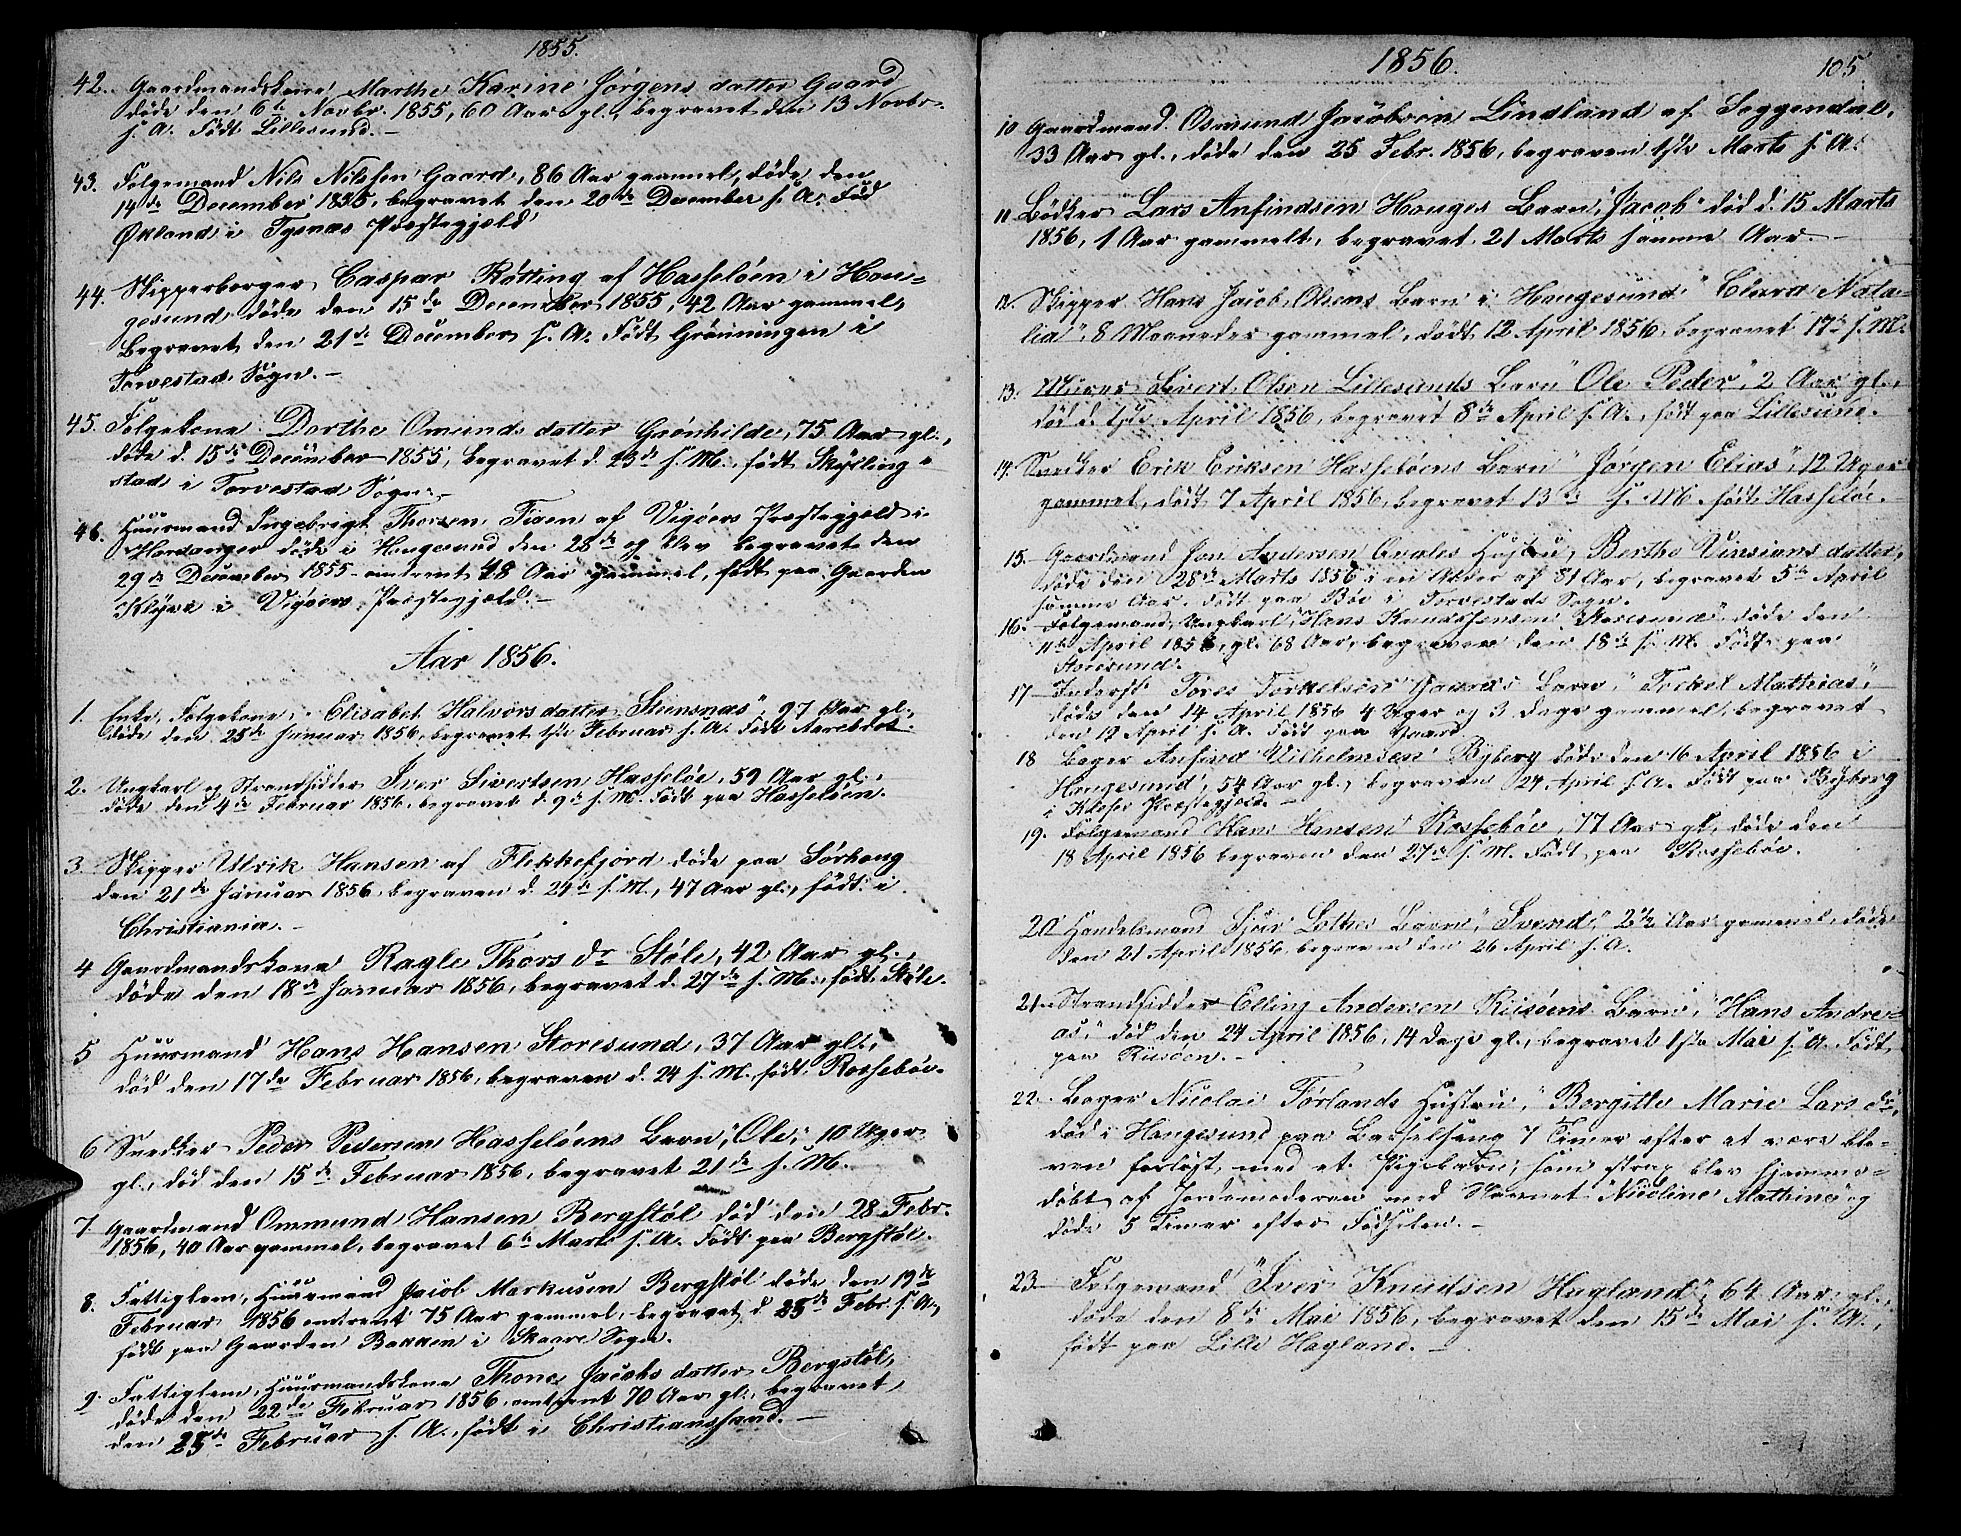 1855.
42. Gaardmandskone Marthe Karine Jørgens datter Gaard
døde den 6te Novbr. 1855, 60 Aar gl., begravet den 13 Novbr.
s. A. Født Lillesund.-
43. Folgemand Nils Nilssen Gaard, 86 Aar gammel, døde den
14de December 1855, begravet den 20de December s. A. Fød
Økland i Tysnæs Præstegjeld
44. Skipperborger Caspar Røtting af Hasseløen i Hau-
gesund døde den 15de December 1855, 42 Aar gammel,
Begravet den 21de December s. A. Født Grønningen i
Torvestad Sogn.-
45. Folgekone Dorthe Omunds datter Grønhilde, 75 Aar gl.,
døde d. 15de December 1855, begravet d. 23de s. M., født Skylling-
stad i Torvestad Sogn.-
46. Huusmand Ingebrigt Thorsen af Vigøers Præstegjeld i
Hardanger døde i Haugesund den 28de og blev begravet den
29de December 1855 omtrent 48 Aar gammel, født paa Gaarden
i Vigøers Præstegjeld.-
Aar 1856.
1. Enke, Folgekone, "Elisabet Halvorsdatter Steensnæs", 97 Aar gl.,
døde den 25de Januar 1856, begravet 1ste Februar s. A. Født Aarebrot.
2. Ungkarl og Strandsidder Iver Sivertsen Hasseløe, 59 Aar gl.,
døde den 4de Februar 1856, begravet d. 9de s. M. Født paa Hasseløen.
3. Skipper Ulrik Hansen af Flekkefjord døde paa Sørhaug
den 21de Januar 1856 begraven d. 24de s. M., 47 Aar gl., født i
Christiania.-
4 Gaardmandskone Ragle Thors dr Støle, 42 Aar gl.,
døde den 18de Januar 1856, begravet d. 27de s. M., født Støle.
5 Huusmand Hans Hansen Storesund, 37 Aar glt.,
død den 17de Februar 1856, begraven d. 24 s. M., født Rossebøe.
6 Snedker Peder Pedersen Hasseløens Barn, "Ole," 10 Uger
gl., død den 15de Februar 1856, begravet 21de s. M.
7. Gaardmand Ommund Hansen Bergstøl død den 28 Febr.
1856, 40 Aar gammel, begravet 6te Marts s. A. Født paa Bergstøl.
8. Fattiglem, Huusmand Jacob Markusen Bergstøl døde den 19de
Februar 1856 omtrent 75 Aar gammel, begravet d 25de Febr. s. A.,
født paa Gaarden Bakken i Skaare Sogn.
9. Fattiglem, Huusmandskone Thone Jacobs datter Bergstøl,
døde den 22de Februar 1856, omtrent 70 Aar gl., begravet
den 25de Februar s. A., født i Christianssand.-
1856.
105
10 Gaardmand Osmund Jacobsen Lindland af Soggendal,
33 Aar gl., døde den 25 Febr. 1856, begraven 1ste Marts s. A.
11 Bødker Lars Anfindsen Hauges Barn "Jacob" død d. 15 Marts
1856, 1 Aar gammelt, begravet 21 Marts samme Aar.-
12. Skipper Hans Jacob Olsens Barn i Haugesund "Clara Nata-
lia", 8 Maaneder gammel, født 12 April 1856, begravet 17de s. M.
13. Murer Sivert Olsen Lillesunds Barn "Ole Peder", 2 Aar gl.,
død d. 1ste April 1856, begravet 8de April s. A., født paa Lillesund.
14. Snedker Erik Eriksen Hasseløens Barn "Jørgen Elias", 12 Uger
gammel, død 7 April 1856, begravet 13de s. M. født Hasseløe.
15. Gaardmand Jon Andersen Qvales Hustru, Berthe Vinsians datter,
døde den 28de Marts 1856 i en Alder af 81 Aar, begravet 5te April
samme Aar. Født paa Bøe i Torvestad Sogn.
16. Folgemand, Ungkarl, "Hans Knudssensen Storesund", døde den
11te April 1856, gl. 68 Aar, begraven den 18de s. M. Født paa
Storesund.
17 Inderst Tores Torkelsen Gaards Barn, "Torkel Mathias",
døde den 14 April 1856 4 Uger og 3 dage gammel, begravet
den 19 April s. A. Født paa Gaard
18 Bager Anfind Vilhelmsen Byberg døde den 16 April 1856 i
Haugesund, 54 Aar gl., begraven 24 April s. A. Født paa Byberg
i Præstegjeld.-
19. Folgemand Hans Hansen Rossebøe, 77 Aar gl., døde den
18 April 1856 begraven den 27de s. M. Født paa Rossebøe.
20 Handelsmand Sjur Lothes Barn, "Svend", 2½ Aar gammel, døde
den 21 April 1856, begraven den 26 April s. A.
21. Strandsidder Elling Andersen Risøens Barn, "Hans Andre-
as," død den 24 April 1856, 14 dage gl., begravet 1ste Mai s. A. Født
paa Risøen.-
22. Bager Nicolai Førlands Hustru, "Borgitte Marie Lars dr,
død i Haugesund paa Barselseng 7 Timer efter at være ble-
ven forløst med et Pigebarn, som strax blev hjemme-
døbt af Jordemoderen med Navnet "Nicoline Mathine" og
døde 5 Timer efter Fødselen.-
23 Folgemand "Iver Knudsen Hagland", 64 Aar gl.,
døde den 8de Mai 1856, begravet den 15de Mai s. A.,
født paa Lille Hagland.-